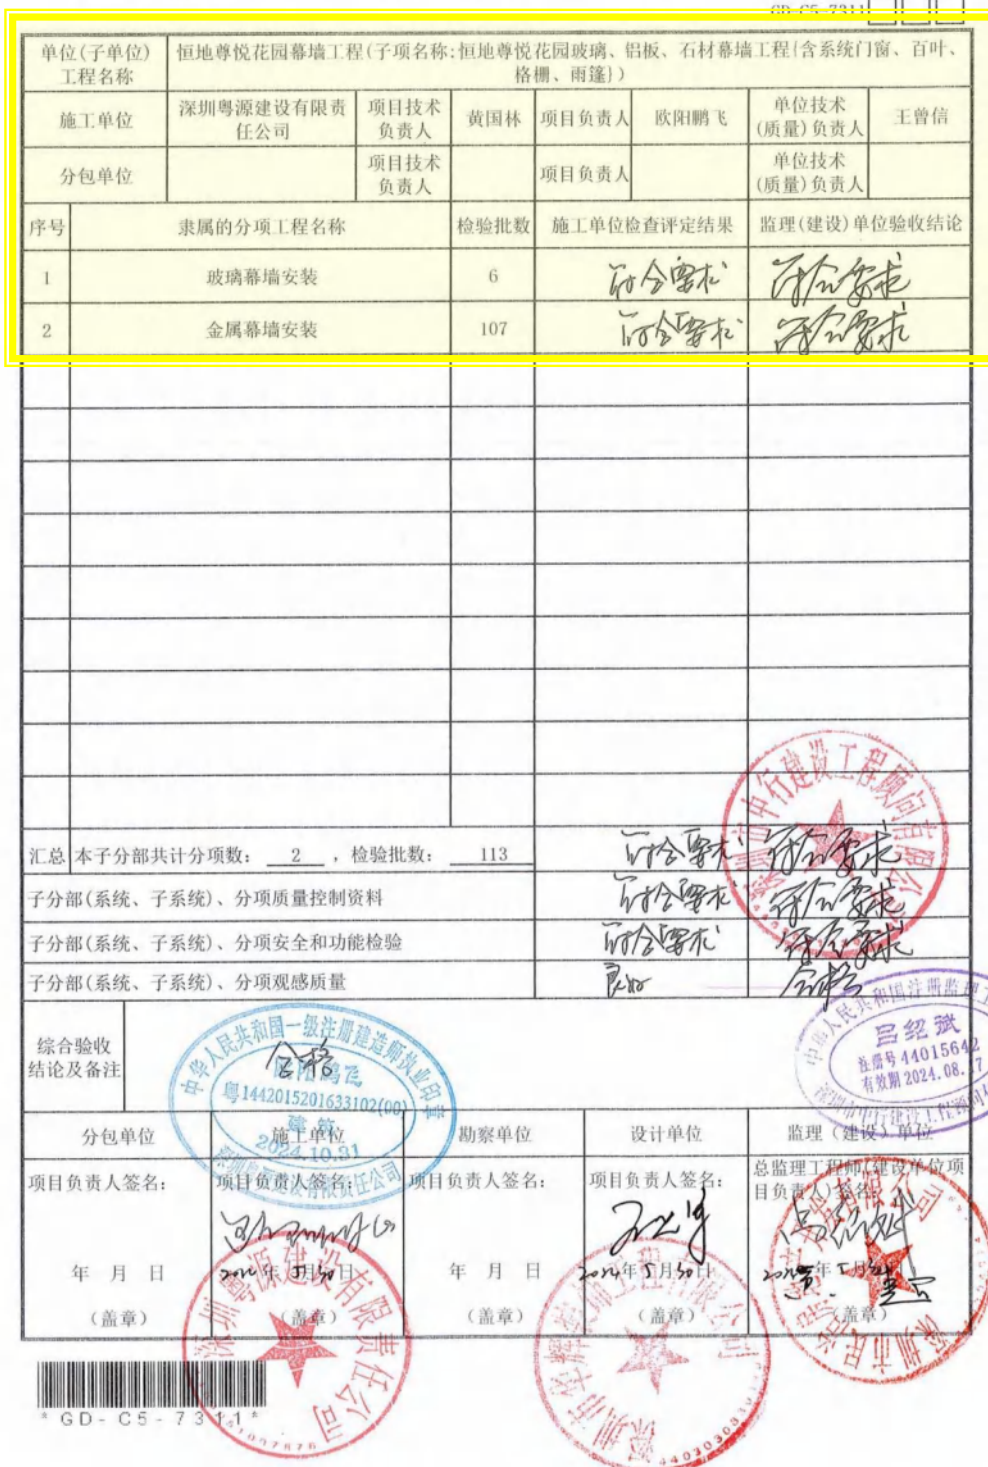 GD-C5-7311
单位(子单位)工程名称 恒地尊悦花园幕墙工程(子项名称:恒地尊悦花园玻璃、铝板、石材幕墙工程{含系统门窗、百叶、格栅、雨篷})
施工单位 深圳粤源建设有限责任公司 项目技术负责人 黄国林 项目负责人 欧阳鹏飞 单位技术(质量)负责人 王曾信
分包单位 项目技术负责人 项目负责人 单位技术(质量)负责人
序号 隶属的分项工程名称 检验批数 施工单位检查评定结果 监理(建设)单位验收结论
1 玻璃幕墙安装 6 符合要求 符合要求
2 金属幕墙安装 107 符合要求 符合要求
汇总 本子分部共计分项数: 2 ,检验批数: 113 符合要求 符合要求
子分部(系统、子系统)、分项质量控制资料 符合要求 符合要求
子分部(系统、子系统)、分项安全和功能检验 符合要求 符合要求
子分部(系统、子系统)、分项观感质量 良好 合格
综合验收结论及备注 合格
中华人民共和国一级注册建造师执业印章
欧阳鹏飞
粤1442015201633102(00)
建筑
2024.10.31
深圳粤源建设有限责任公司
吕绍斌
注册号 44015642
有效期 2024.08.17
分包单位 施工单位 勘察单位 设计单位 监理(建设)单位
项目负责人签名: 项目负责人签名: 项目负责人签名: 项目负责人签名: 总监理工程师(建设单位项目负责人)签名:
年 月 日 年5月30日 年 月 日 2024年5月30日 年5月30日
(盖章) (盖章) (盖章) (盖章) (盖章)
深圳粤源建设有限责任公司
*GD-C5-7311*